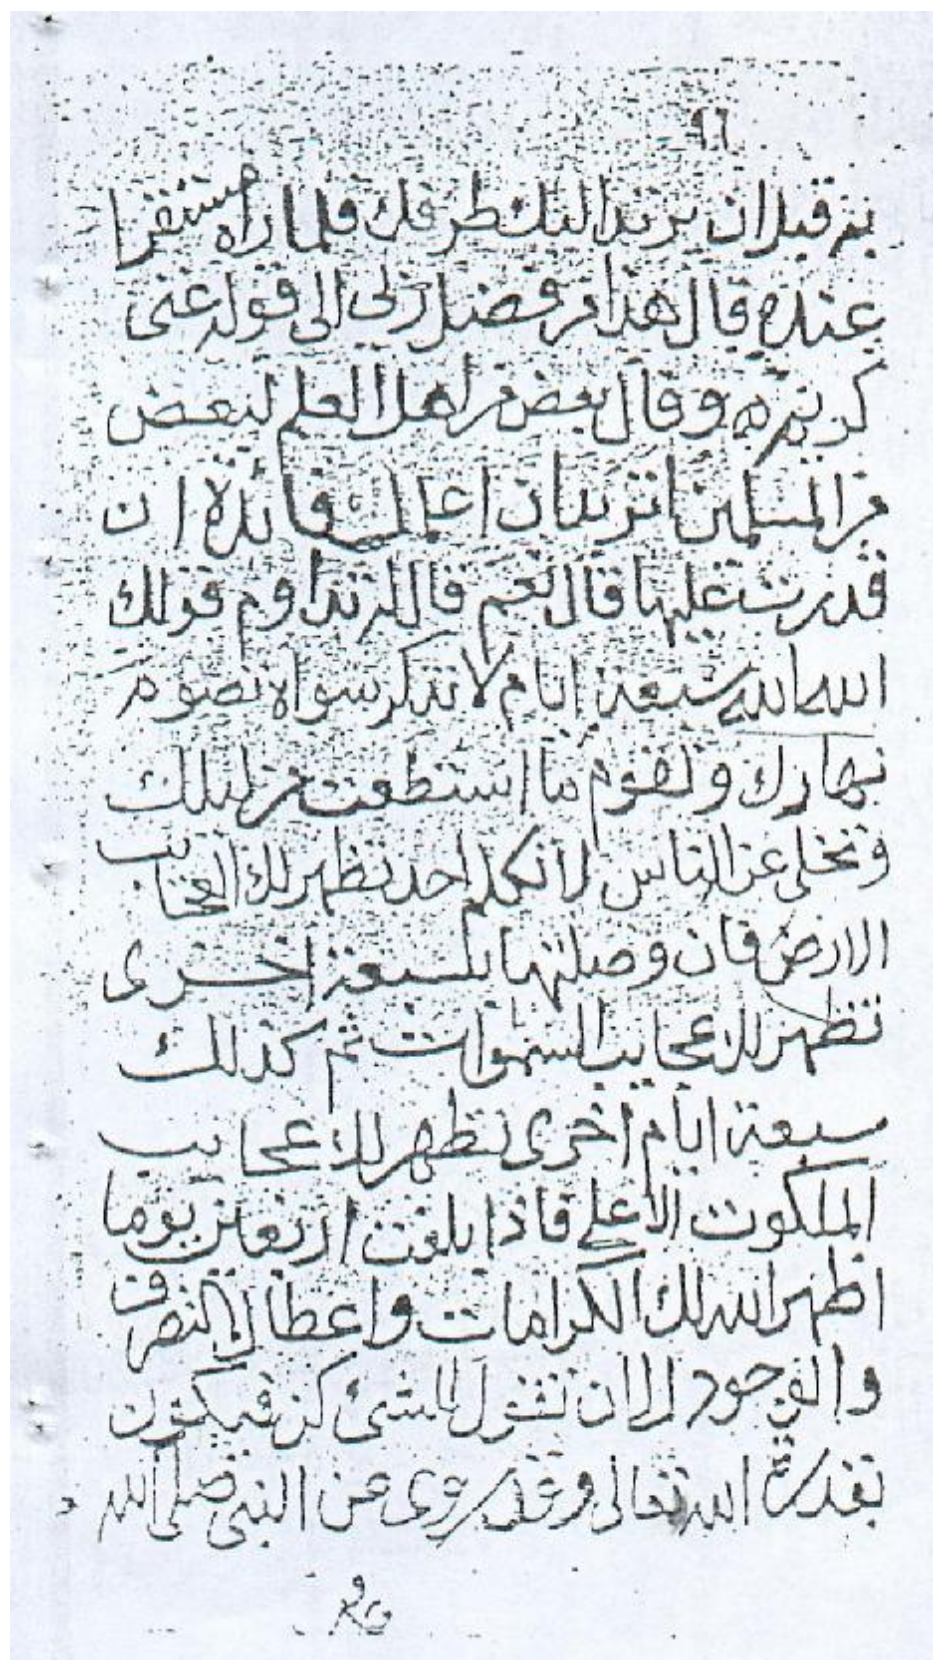 ٩٦
به قبل ان يرتد اليك طرفك فلما راه مستقرا
عنده قال هذا من فضل ربي الى قوله غني
كريم وقال بعض من اهل العلم لبعض
من المسلمين اتريد ان اعلمك فائدة ان
قدرت عليها قال نعم قال له تداوم قولك
الله الله سبعة ايام لا تذكر سواه تصوم
نهارك وتقوم ما استطعت من ليلك
وتخلى عن الناس لا تكلم احد تظهر لك العجايب
الارض فان وصلتها بسبعة اخرى
تظهر لك عجايب السموات ثم كذلك
سبعة ايام اخرى تظهر لك عجايب
الملكوت الاعلى فاذا بلغت اربعين يوما
اظهر الله لك الكرامات واعطاك التصرف
والوجود الا ان تقول للشئ كن فيكون
بقدرة الله تعالى وقد روى عن النبي صلى الله